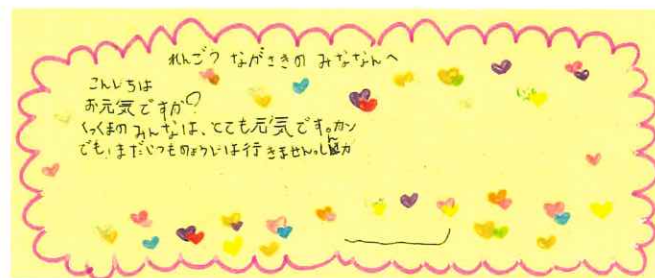 れんごう ながさきの みなさんへ
こんにちは
お元気ですか?
くっくまのみんなは、とても元気です。カン
でも、まだいつものようには行きません。し